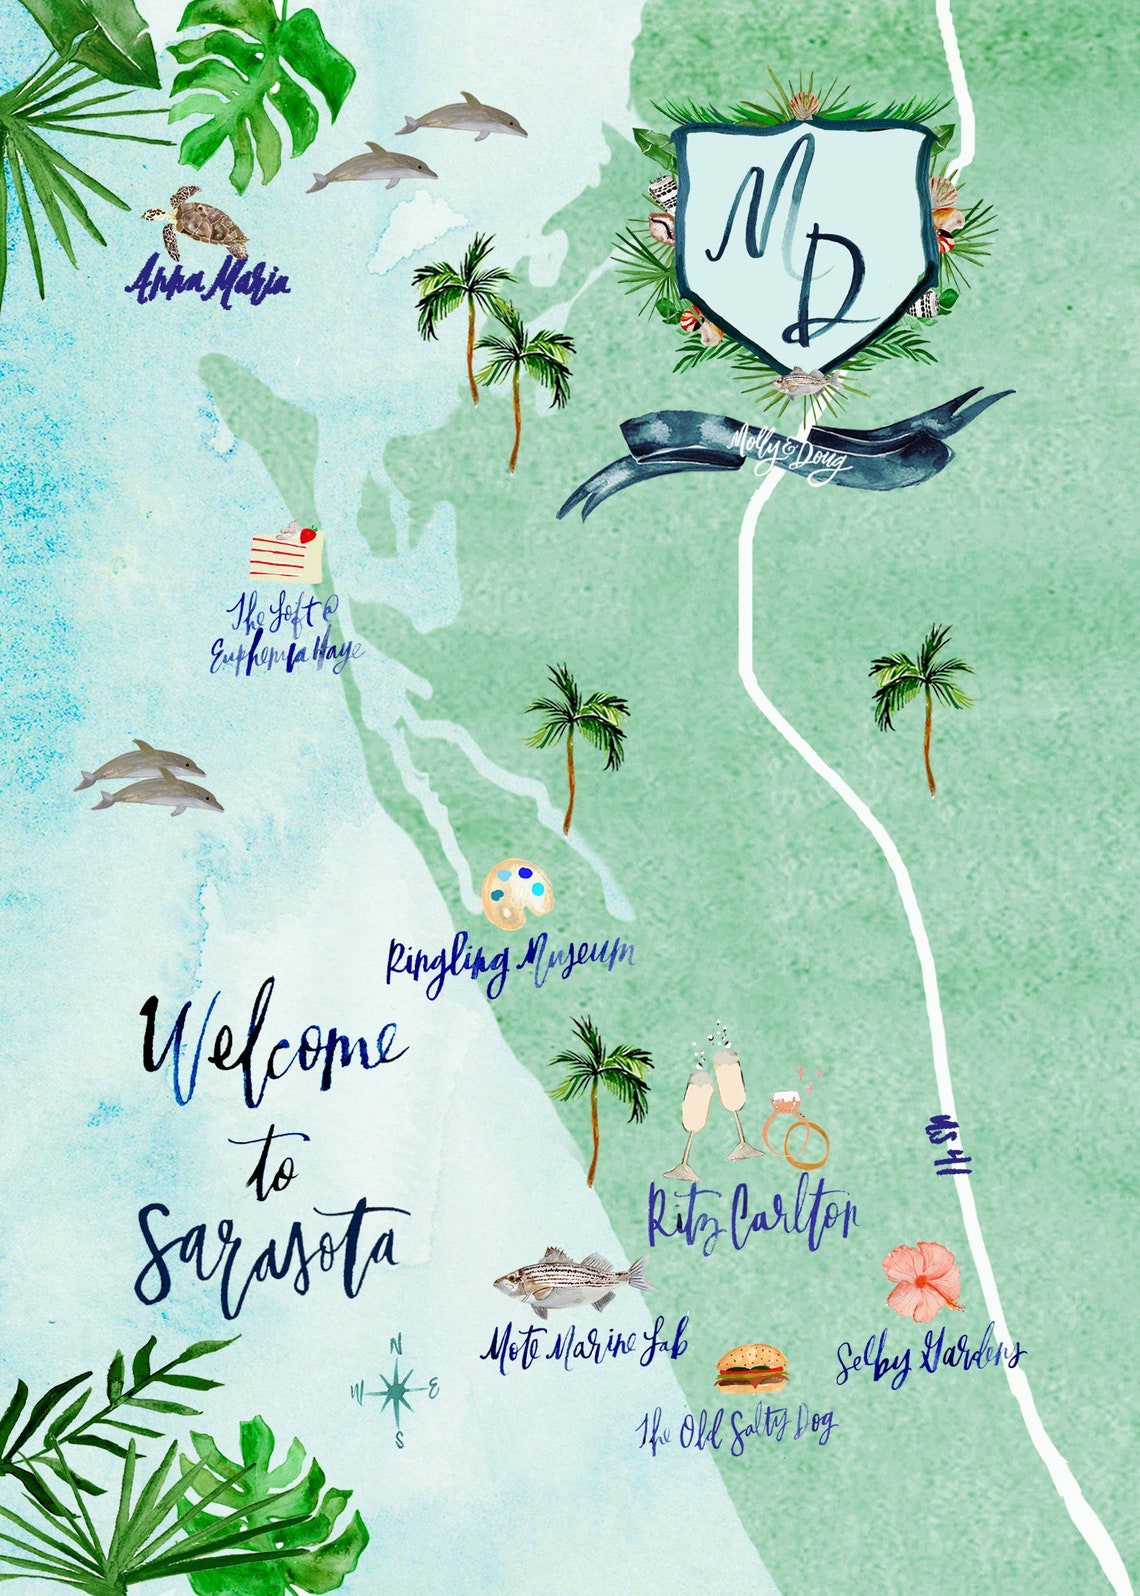 M
D
Molly & Doug
Anna Maria
The Loft @
Euphemia Haye
Ringling Museum
Welcome
to
Sarasota
Ritz Carlton
US 41
Mote Marine Lab
Selby Gardens
The Old Salty Dog
N
W E
S